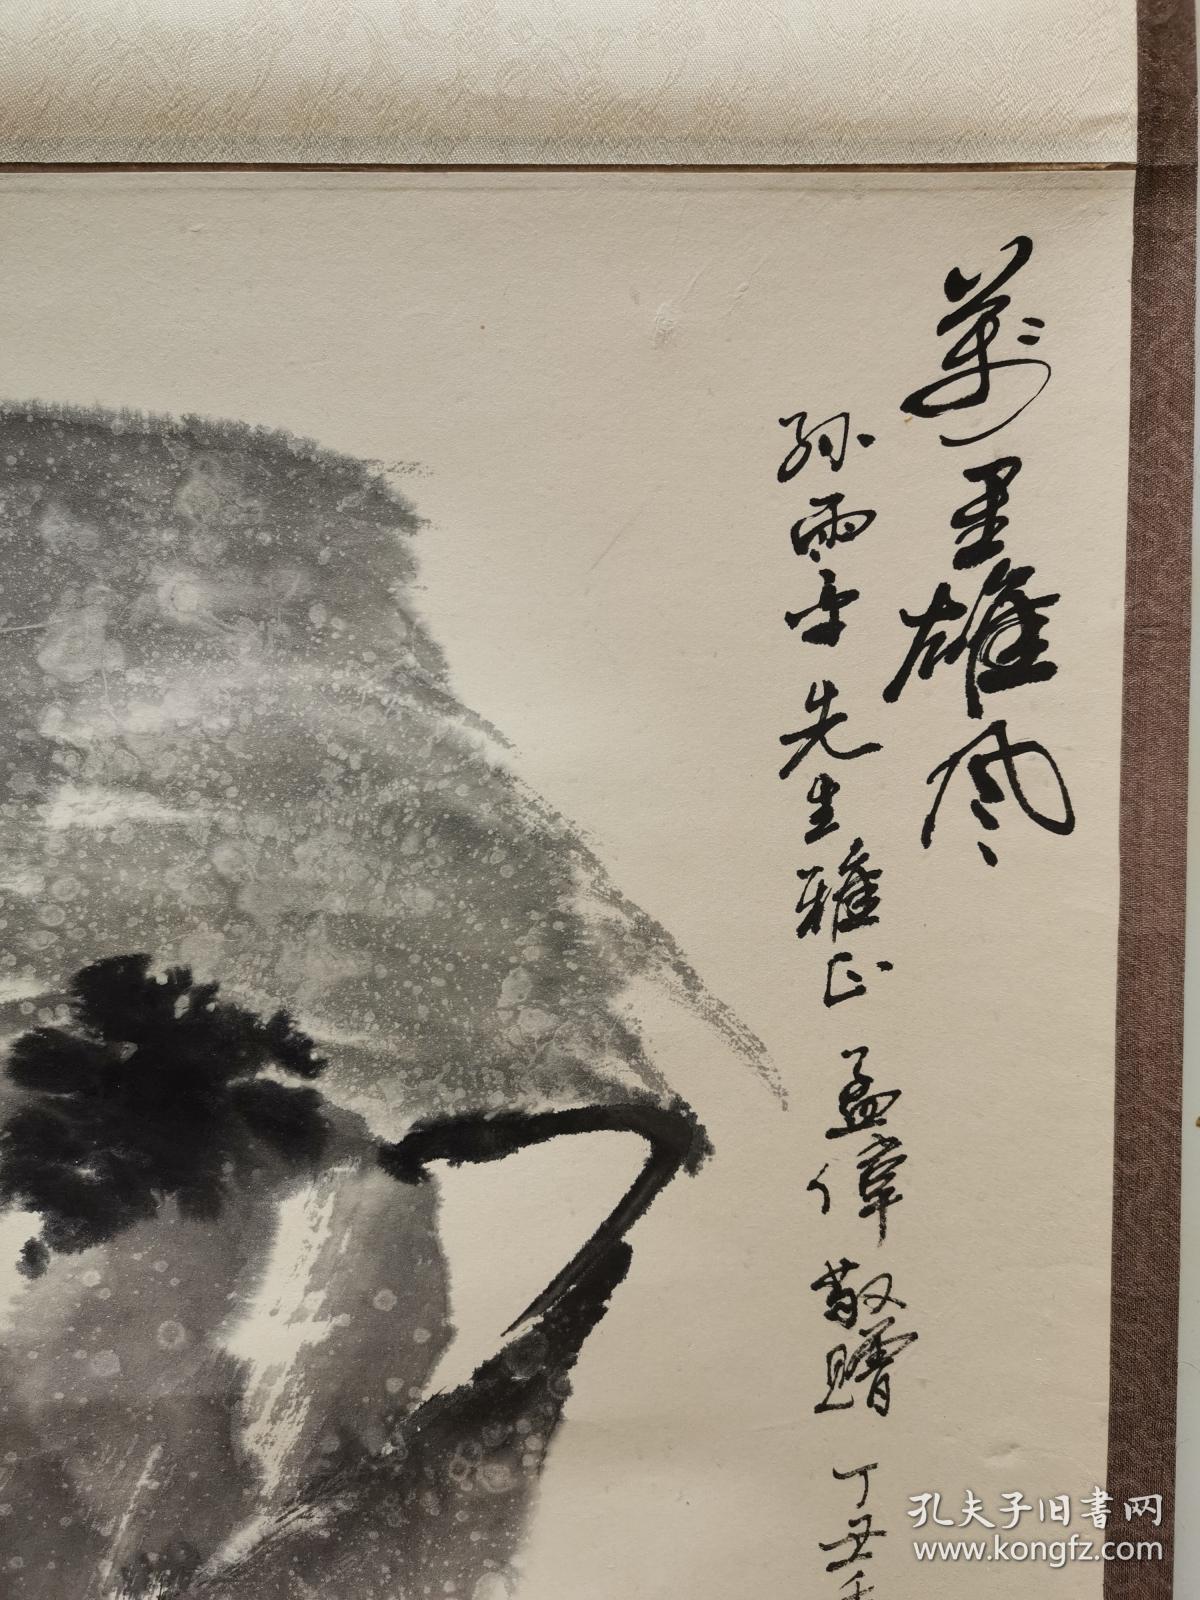 萬里雄风
孙雨平先生雅正 孟偉敬贈 丁丑
孔夫子旧書网
www.kongfz.com